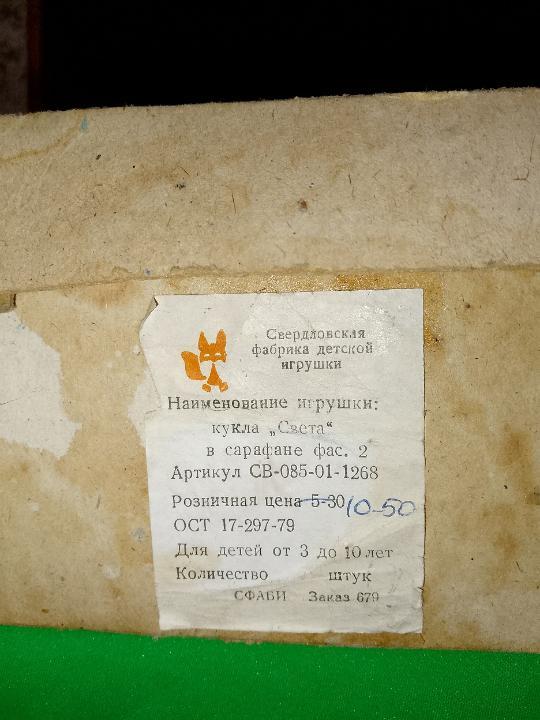 Свердловская
фабрика детской
игрушки
Наименование игрушки:
кукла „Света“
в сарафане фас. 2
Артикул СВ-085-01-1268
Розничная цена 5-30 10-50
ОСТ 17-297-79
Для детей от 3 до 10 лет
Количество штук
СФАБИ Заказ 679